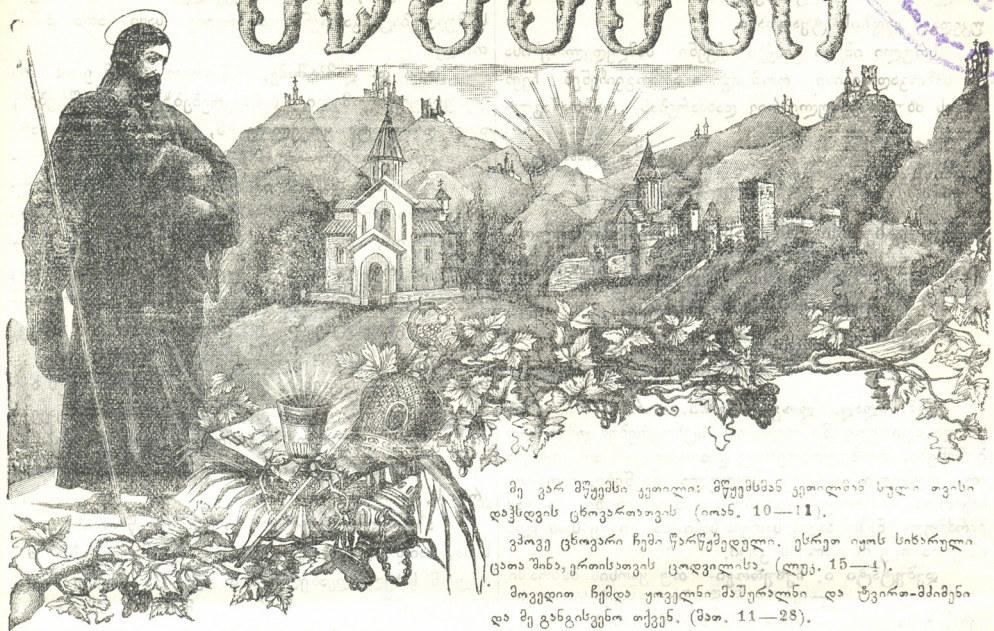 მწყემსი
მე ვარ მწყემსი კეთილი: მწყემსმან კეთილმან სული თვისი
დაჰსდვის ცხოვართათვის (იოან. 10—11).
ვპოვე ცხოვარი ჩემი წარწყმედული. ესრეთ იყოს სიხარული
ცათა შინა, ერთისათვის ცოდვილისა. (ლუკ. 15—4).
მოვედით ჩემდა ყოველნი მაშვრალნი და ტვირთ-მძიმენი
და მე განგისვენო თქვენ. (მათ. 11—28).